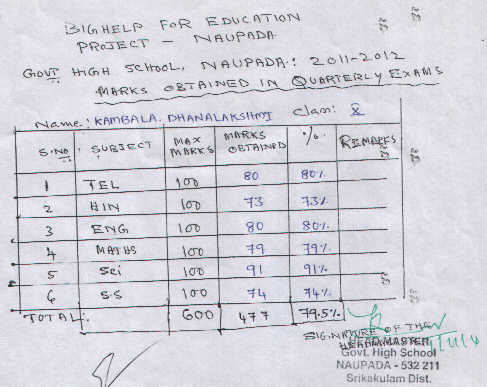 BIGHELP FOR EDUCATION
PROJECT - NAUPADA
GOVT HIGH SCHOOL, NAUPADA: 2011-2012
MARKS OBTAINED IN QUARTERLY EXAMS
Name: KAMBALA. DHANALAKSHMI Class: X
S.NO SUBJECT MAX MARKS MARKS OBTAINED %. REMARKS
1 TEL 100 80 80%
2 HIN 100 73 73%
3 ENG 100 80 80%
4 MATHS 100 79 79%
5 Sci 100 91 91%
6 S.S 100 74 74%
TOTAL: 600 477 79.5%
SIGNATURE OF THE
HEADMASTER
Govt. High School
NAUPADA - 532 211
Srikakulam Dist.